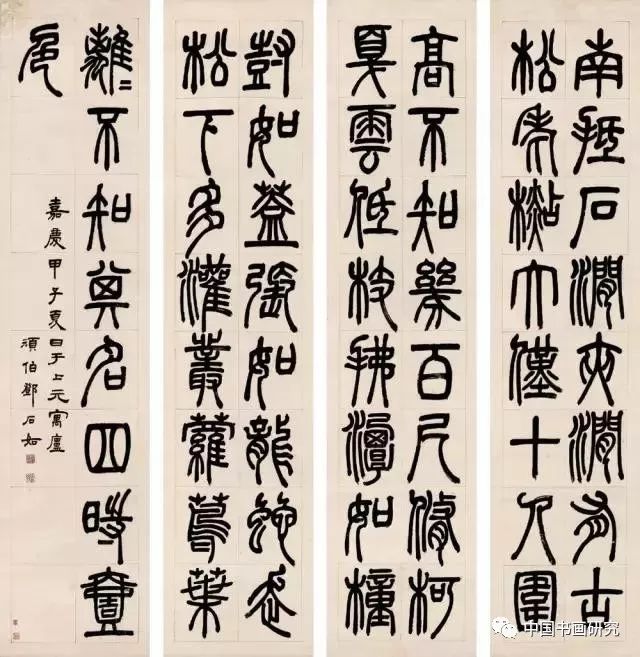 南抵石澗夾澗有古
松老檆大僅十人圍
高不知幾百尺脩柯
戛雲低枝拂潭如橦
尌如蓋張如龍蛇走
松下多灌叢蘿蔦葉
離〻不知其名四時壹
色
嘉慶甲子夏日于上元寓廬
頑伯鄧石如
中国书画研究